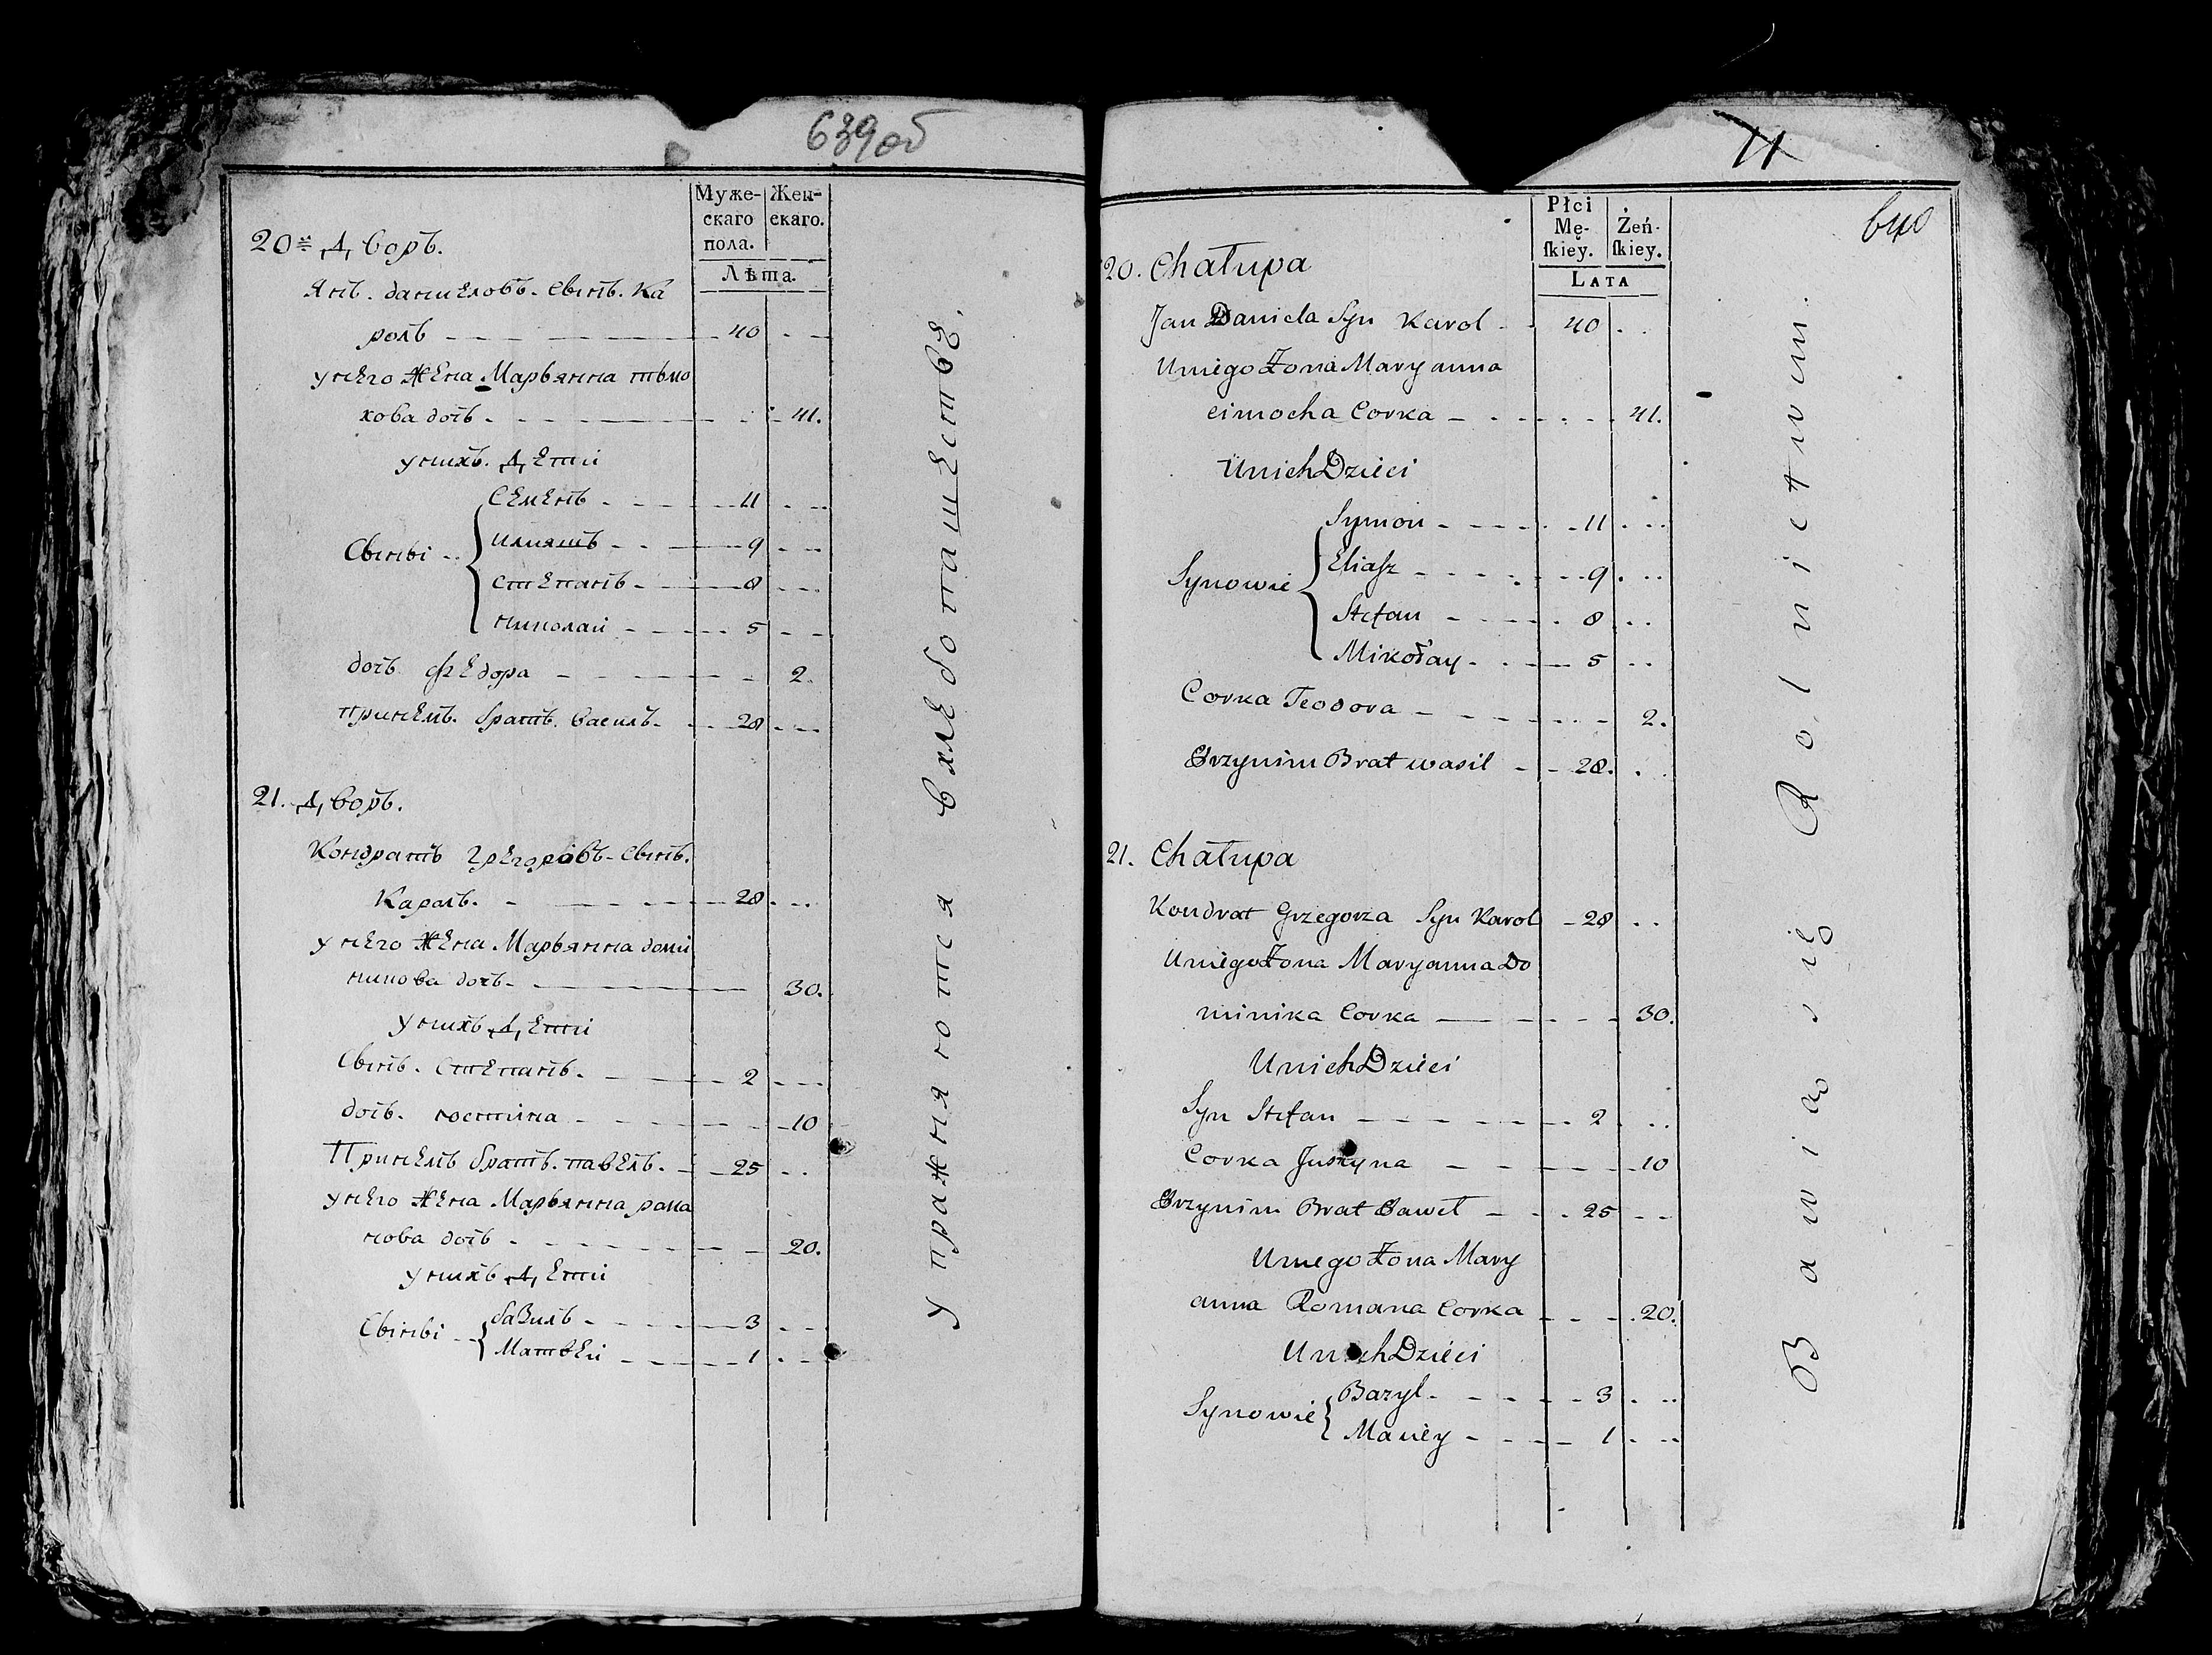 639об
Муже-
скаго
пола.
Жен-
скаго.
Лѣта.
20й Дворъ.
Янъ. данилловъ. Свінъ. Ка
роль 40
унего жена Марьянна тімо
хова дочь 41.
унихъ. Дети
Свінві
Семенъ 11
илияшъ 9
степанъ 8
николай 5
дочь федора 2.
принемъ. братъ. василь. 28
21. Дворъ.
Кондратъ Грегоровъ-Свінъ.
Кароль. 28
унего жена Марьянна доми
никова дочь 30.
унихъ Дети
Свінъ. степанъ. 2
дочь. юстина 10
Принемъ братъ. павелъ. 25
унего жена Марьянна рама
нова дочь 20.
унихъ Дети
Свінві
базиль 3
Матвей 1
упражняются вхлебопашестве.
11
640
Płci
Mę-
ſkiey.
Żeń-
ſkiey.
LATA
20. Chałupa
Jan Daniela Syn Karol 40
Uniego Żona Maryanna
cimocha Corka 41.
Unich Dzieci
Synowie
Symon 11
Eliaſz 9
Stefan 8
Mikołay 5
Corka Teodora 2.
Przynim Brat wasil 28.
21. Chałupa
Kondrat Grzegorza Syn Karol 28
Uniego Żona Maryanna Do
minika Corka 30.
Unich Dzieci
Syn Stefan 2
Corka Justyna 10
Przynim Brat Paweł 25
Uniego Żona Mary
anna Romana Corka 20.
Unich Dzieci
Synowie
Bazyl 3
Maciey 1
Bawią się Rolnictwem.